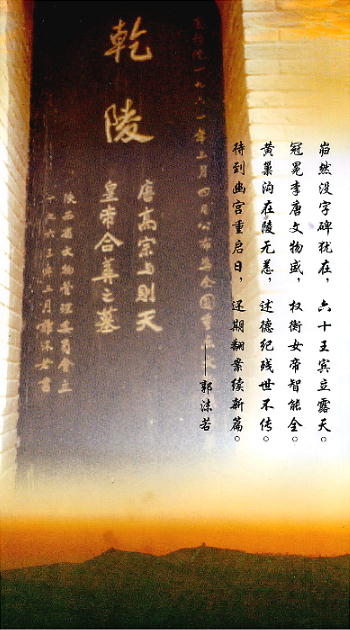 岿然没字碑犹在，六十王宾立露天。
冠冕李唐文物盛，权衡女帝智能全。
黄巢沟在陵无恙，述德纪残世不传。
待到幽宫重启日，还期翻案续新篇。
——郭沫若
国务院一九六一年三月四日公布为全国重点
乾陵
唐高宗与则天
皇帝合葬之墓
陕西省文物管理委员会立
一九六三年三月郭沫若书